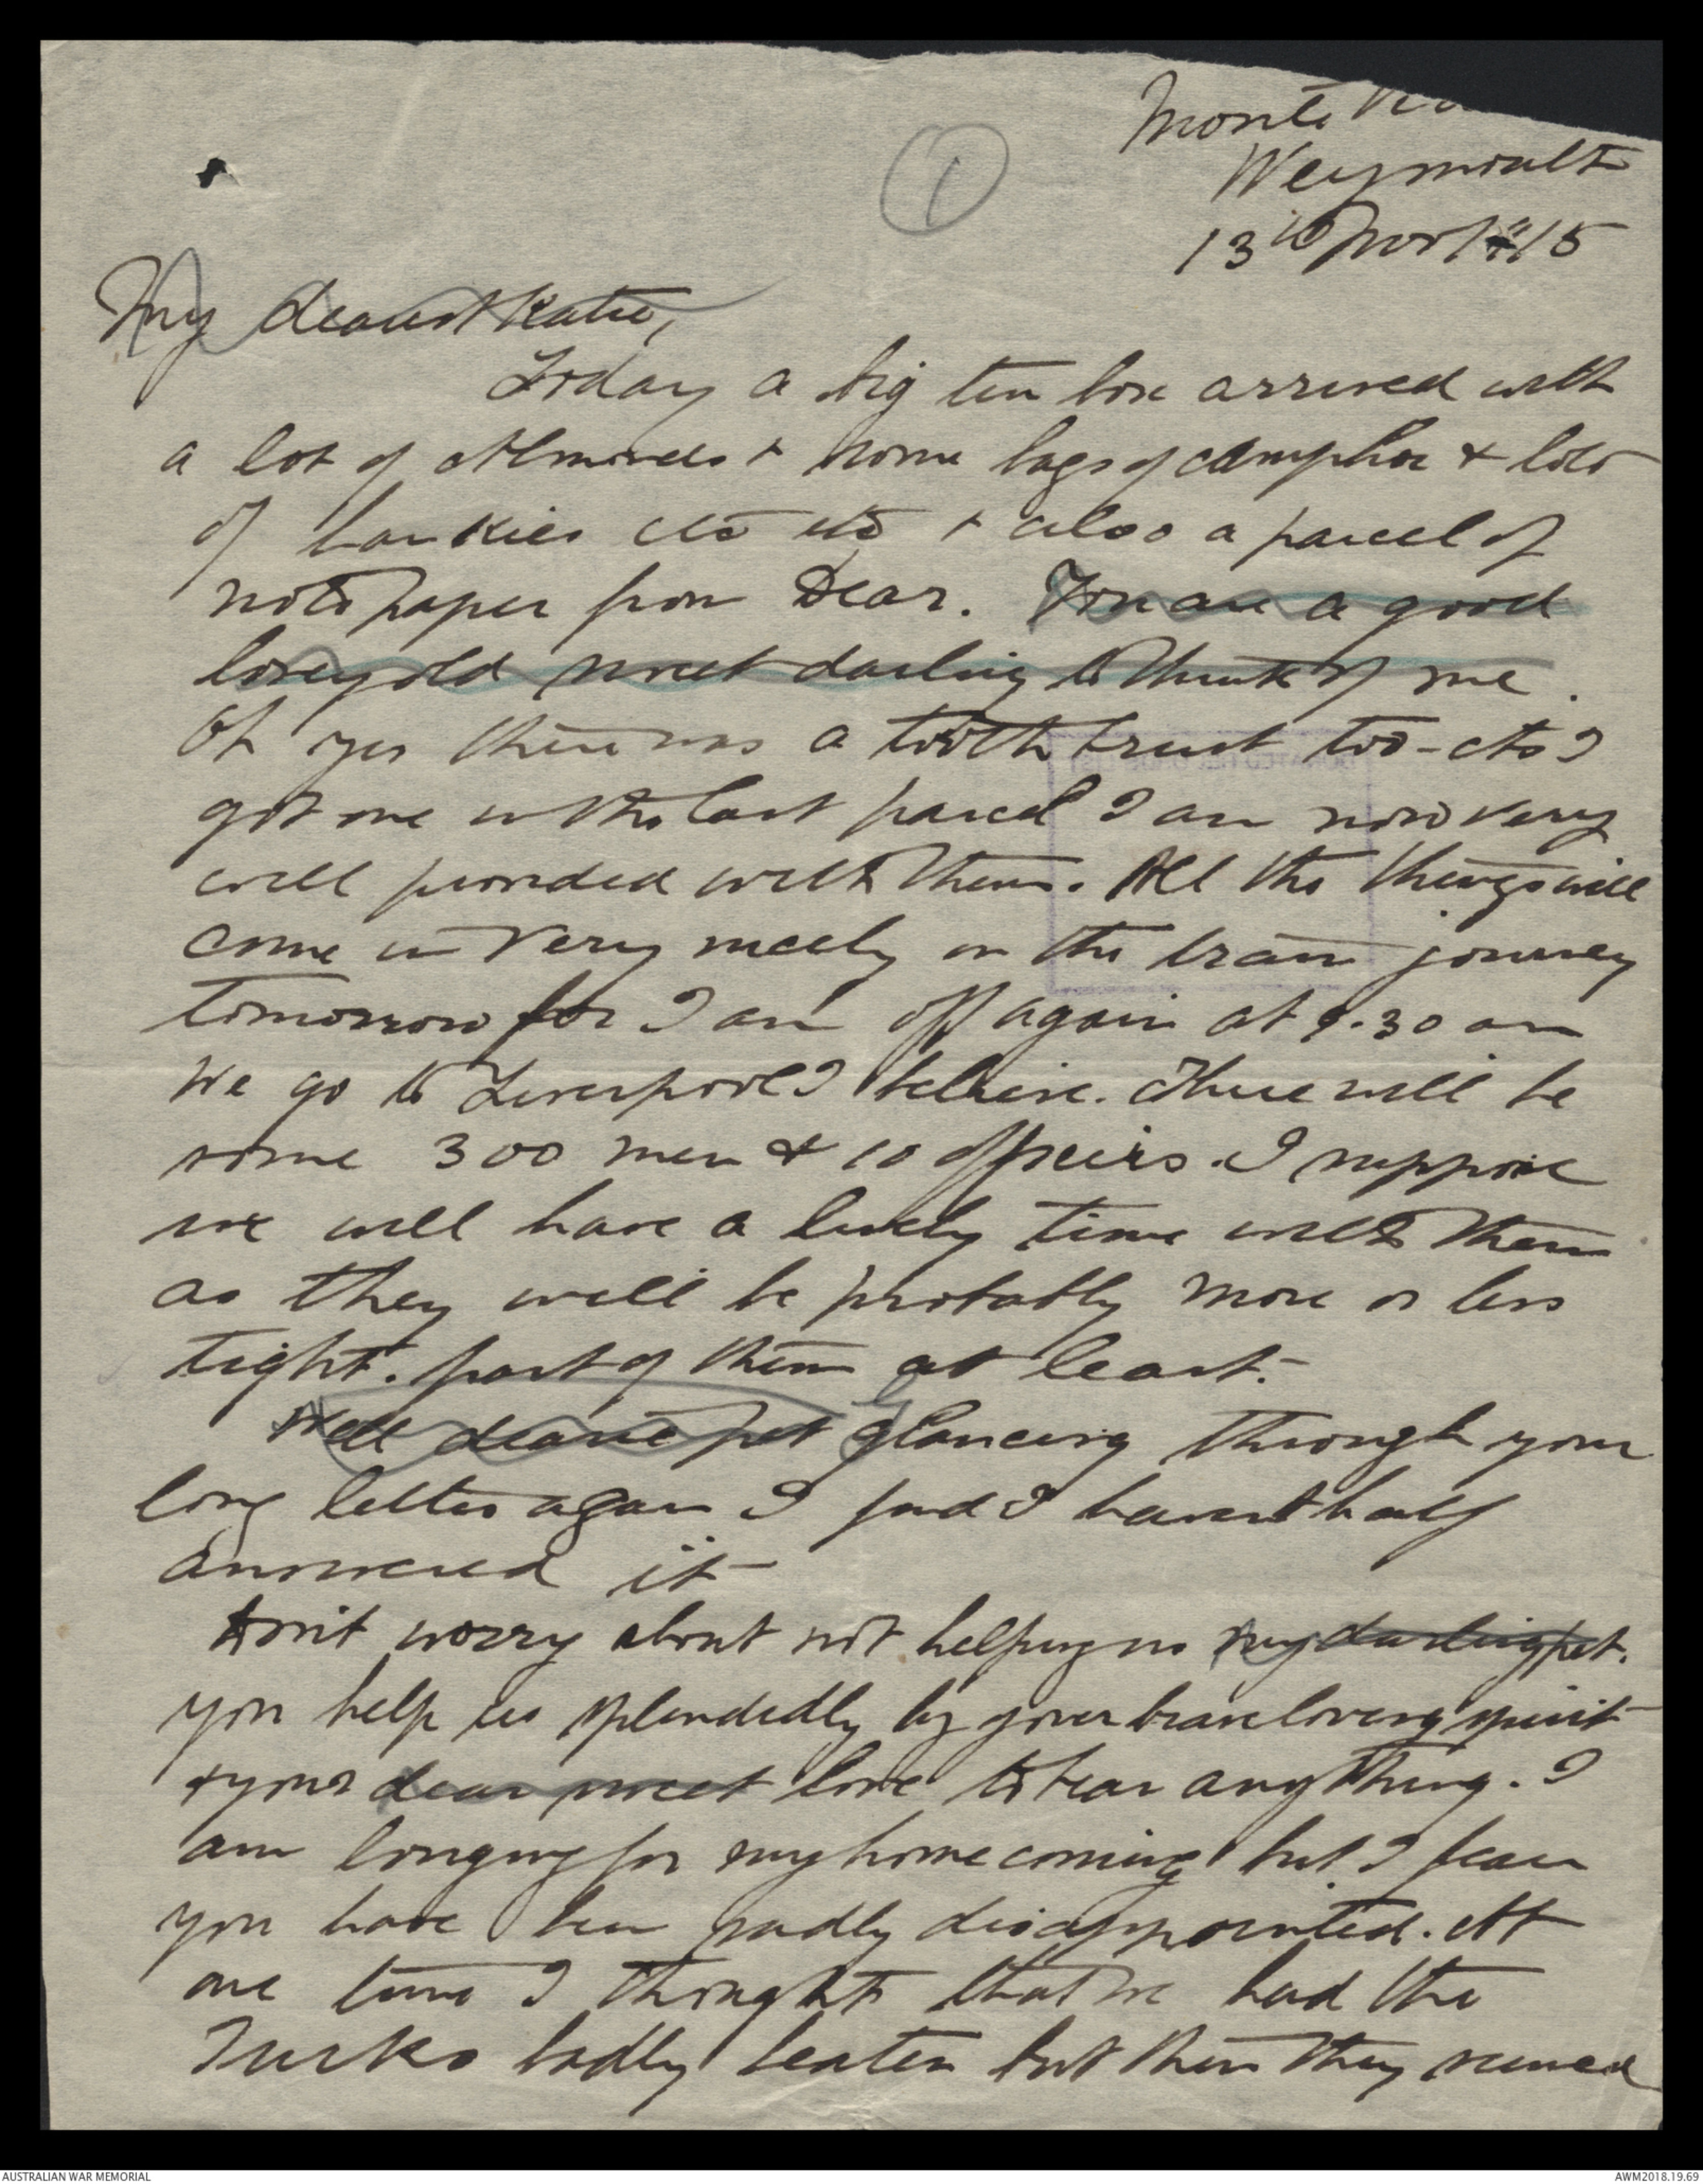 Monte
Weymouth
13th Nov 1915
①
My dearest Katie,
Today a big tin box arrived with
a lot of Almonds & some bags of camphor & lots
of hankies etc etc & also a parcel of
note paper from Dear. You are a good
lovey old sweet darling to think of me.
Oh yes there was a tooth brush too - As I
got one in the last parcel I am now very
well provided with them. All the things will
come in very nicely on the train journey
tomorrow for I am off again at 9.30 am
We go to Liverpool I believe. There will be
some 300 men & 10 officers. I suppose
we will have a lively time with them
as they will be probably more or less
tight. part of them at least.
Well dearie pet glancing through your
long letter again I find I havent half
answered it
Don't worry about not helping us my darling pet.
you help us splendidly by your brave loving spirit
& your dear sweet love to bear anything. I
am longing for my home coming but I fear
you have been sadly disappointed. At
one time I thought that we had the
Turks badly beaten but then they seemed
AUSTRALIAN WAR MEMORIAL
AWM2018.19.69